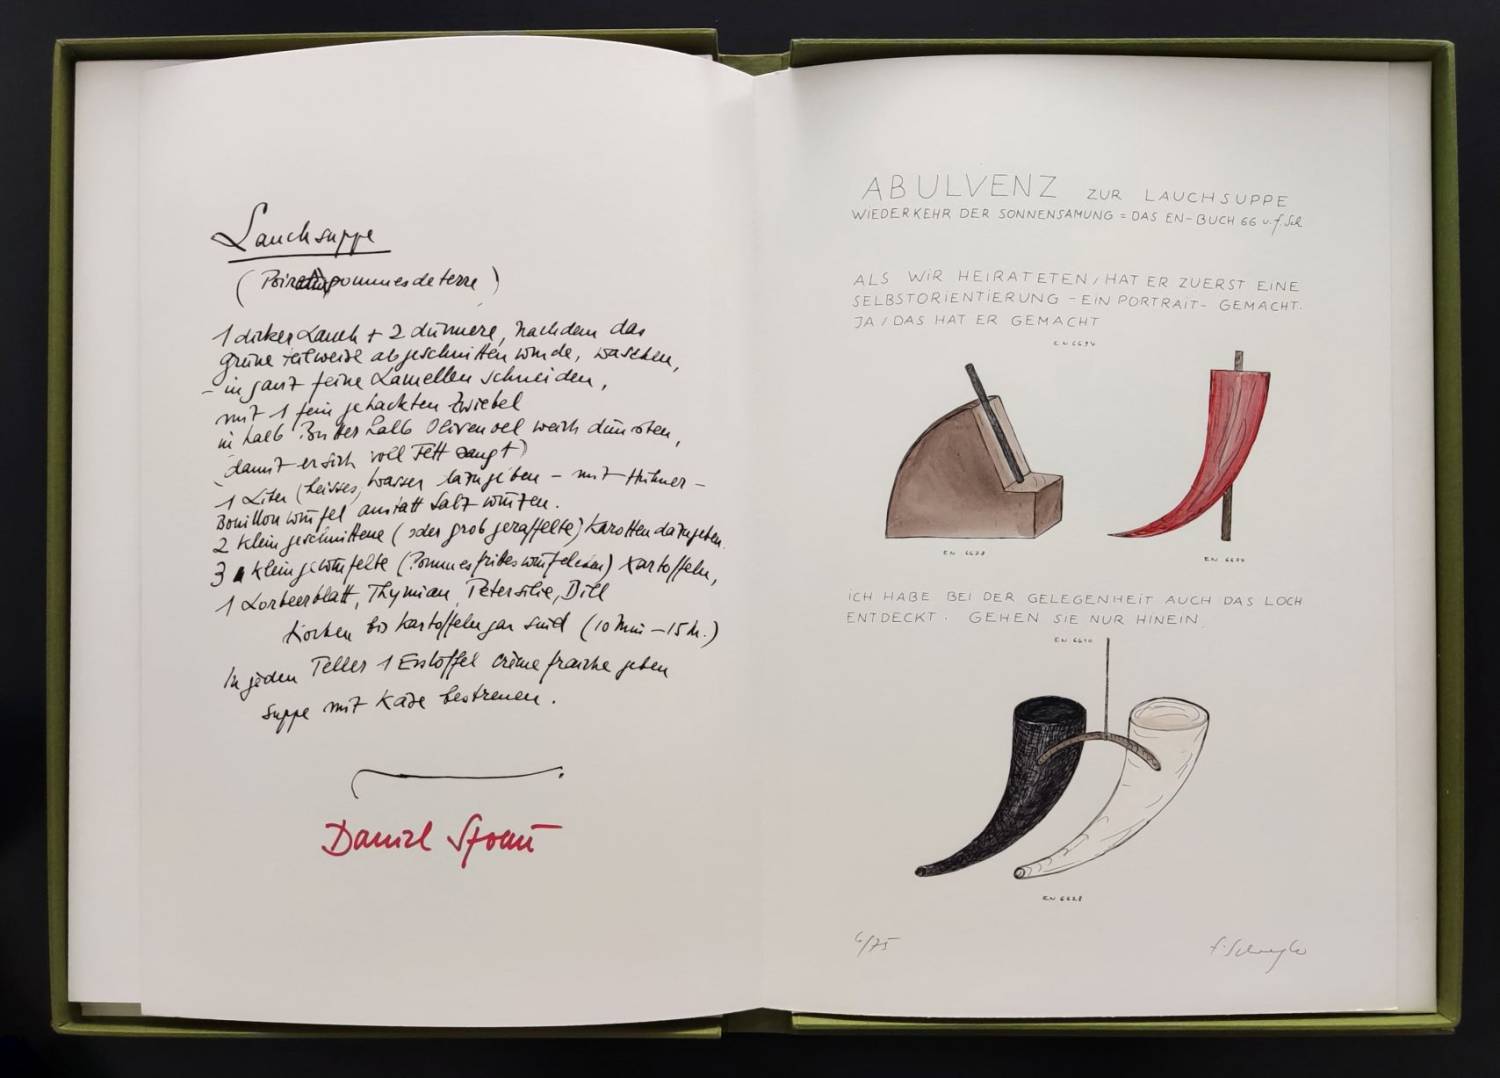 Lauchsuppe
(Poireaupommes de terre)
1 dicker Lauch + 2 dünnere, nachdem das
grüne teilweise abgeschnitten wurde, waschen,
– in ganz feine Lamellen schneiden,
mit 1 fein gehackten Zwiebel
in halb Butter halb Olivenoel weich dünsten,
damit er sich voll Fett saugt)
1 Liter (heisses) Wasser dazugeben – mit Hühner-
Bouillonwürfel anstatt Salz würzen.
2 kleingeschnittene (oder grob geraffelte) Karotten dazugeben.
3 kleingewürfelte (Pommes frites würfelchen) Kartoffeln,
1 Lorbeerblatt, Thymian, Petersilie, Dill
kochen bis Kartoffeln gar sind (10 Min – 15 M.)
In jeden Teller 1 Esslöffel Crème fraiche geben
Suppe mit Käse bestreuen.
Daniel Spoerri
ABULVENZ ZUR LAUCHSUPPE
WIEDERKEHR DER SONNENSAMUNG = DAS EN-BUCH 66 v. f. Sch
ALS WIR HEIRATETEN / HAT ER ZUERST EINE
SELBSTORIENTIERUNG – EIN PORTRAIT – GEMACHT.
JA / DAS HAT ER GEMACHT
EN 6694
EN
EN
ICH HABE BEI DER GELEGENHEIT AUCH DAS LOCH
ENTDECKT. GEHEN SIE NUR HINEIN.
EN 6610
EN 6628
6/75